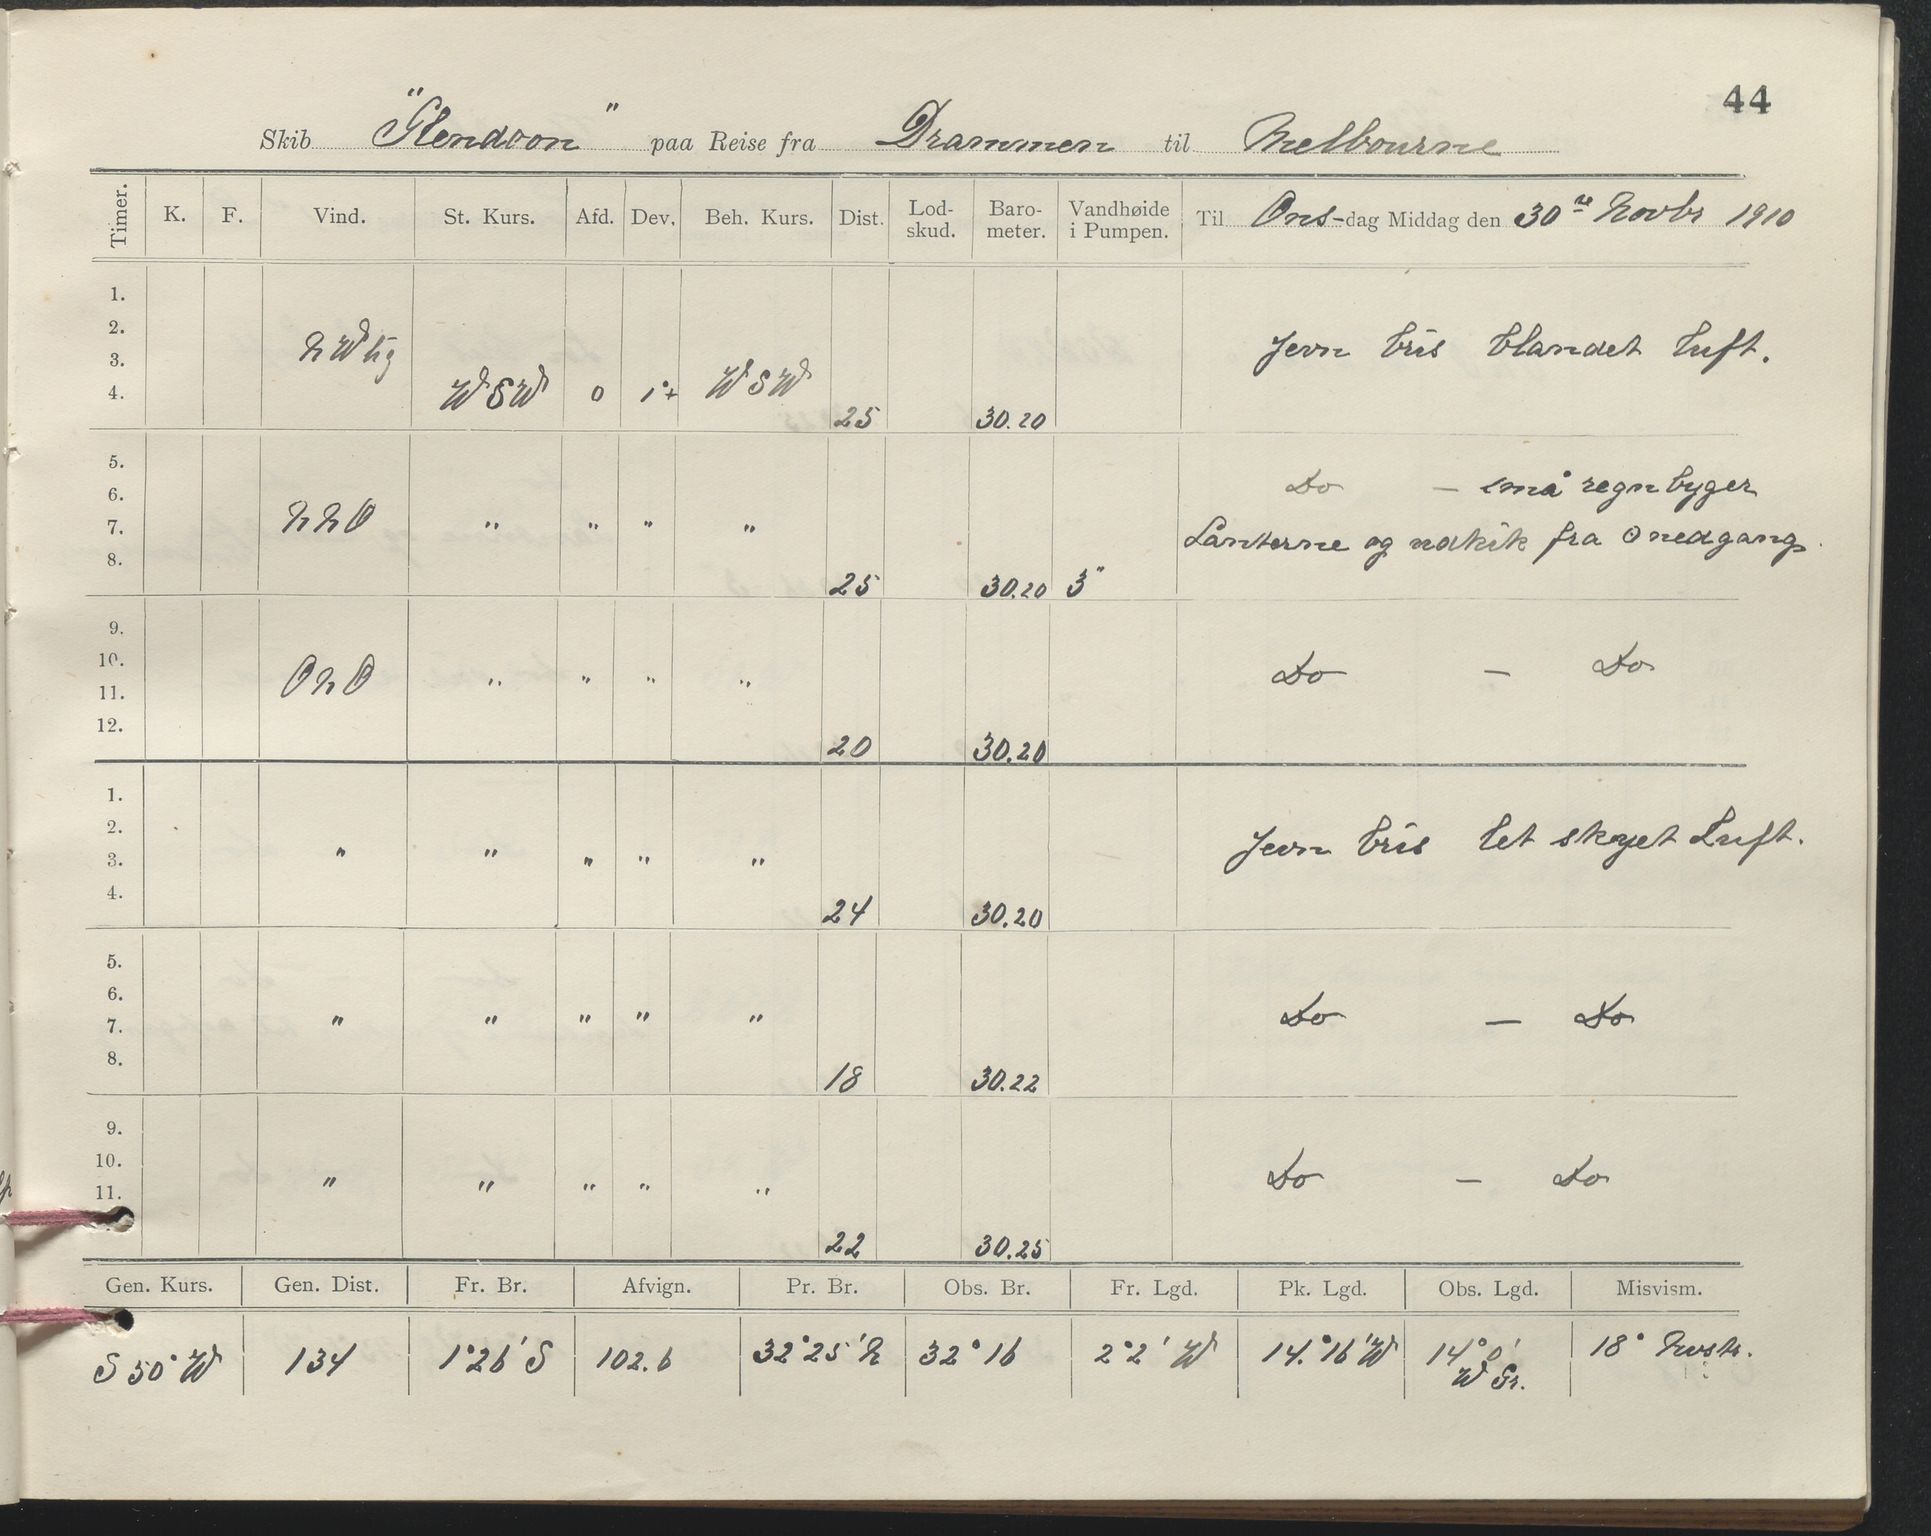 44
Skib "Glendoon" paa Reise fra Drammen til Melbourne
Timer. K. F. Vind. St. Kurs. Afd. Dev. Beh. Kurs. Dist. Lod-skud. Baro-meter. Vandhøide i Pumpen. Til Ons-dag Middag den 30te Novbr 1910
1.
2.
3. NWlig Jevn bris blandet luft.
4. WSW 0 1°+ WSW 25 30.20
5.
6. Do — små regnbyger
7. NNO " " " " Lanterne og udkik fra ⊙nedgang.
8. 25 30.20 3"
9.
10. ONO " " " " Do — Do
11.
12. 20 30.20
1.
2.
3. " " " " " Jevn bris let skyet Luft.
4. 24 30.20
5.
6.
7. " " " " " Do — Do
8. 18 30.22
9.
10.
11. " " " " " Do — Do
22 30.25
Gen. Kurs. Gen. Dist. Fr. Br. Afvign. Pr. Br. Obs. Br. Fr. Lgd. Pk. Lgd. Obs. Lgd. Misvism.
S 50° W 134 1°26' S 102.6 32°25' N 32°16 2°2' W 14.°16' W 14°0' 18°
W Gr.